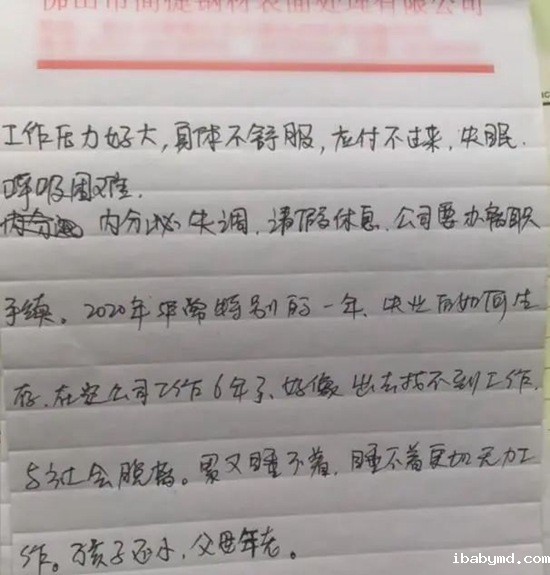 工作压力好大,身体不舒服,应付不过来,失眠.
呼吸困难.
内分泌失调,请假休息,公司要办辞职
手续。2020年非常特别的一年、失业后如何生
存,在这公司工作6年了、好像出去找不到工作,
与社会脱轨。累又睡不着,睡不着更加无力工
作。孩子还小,父母年老。
ibabymd.com